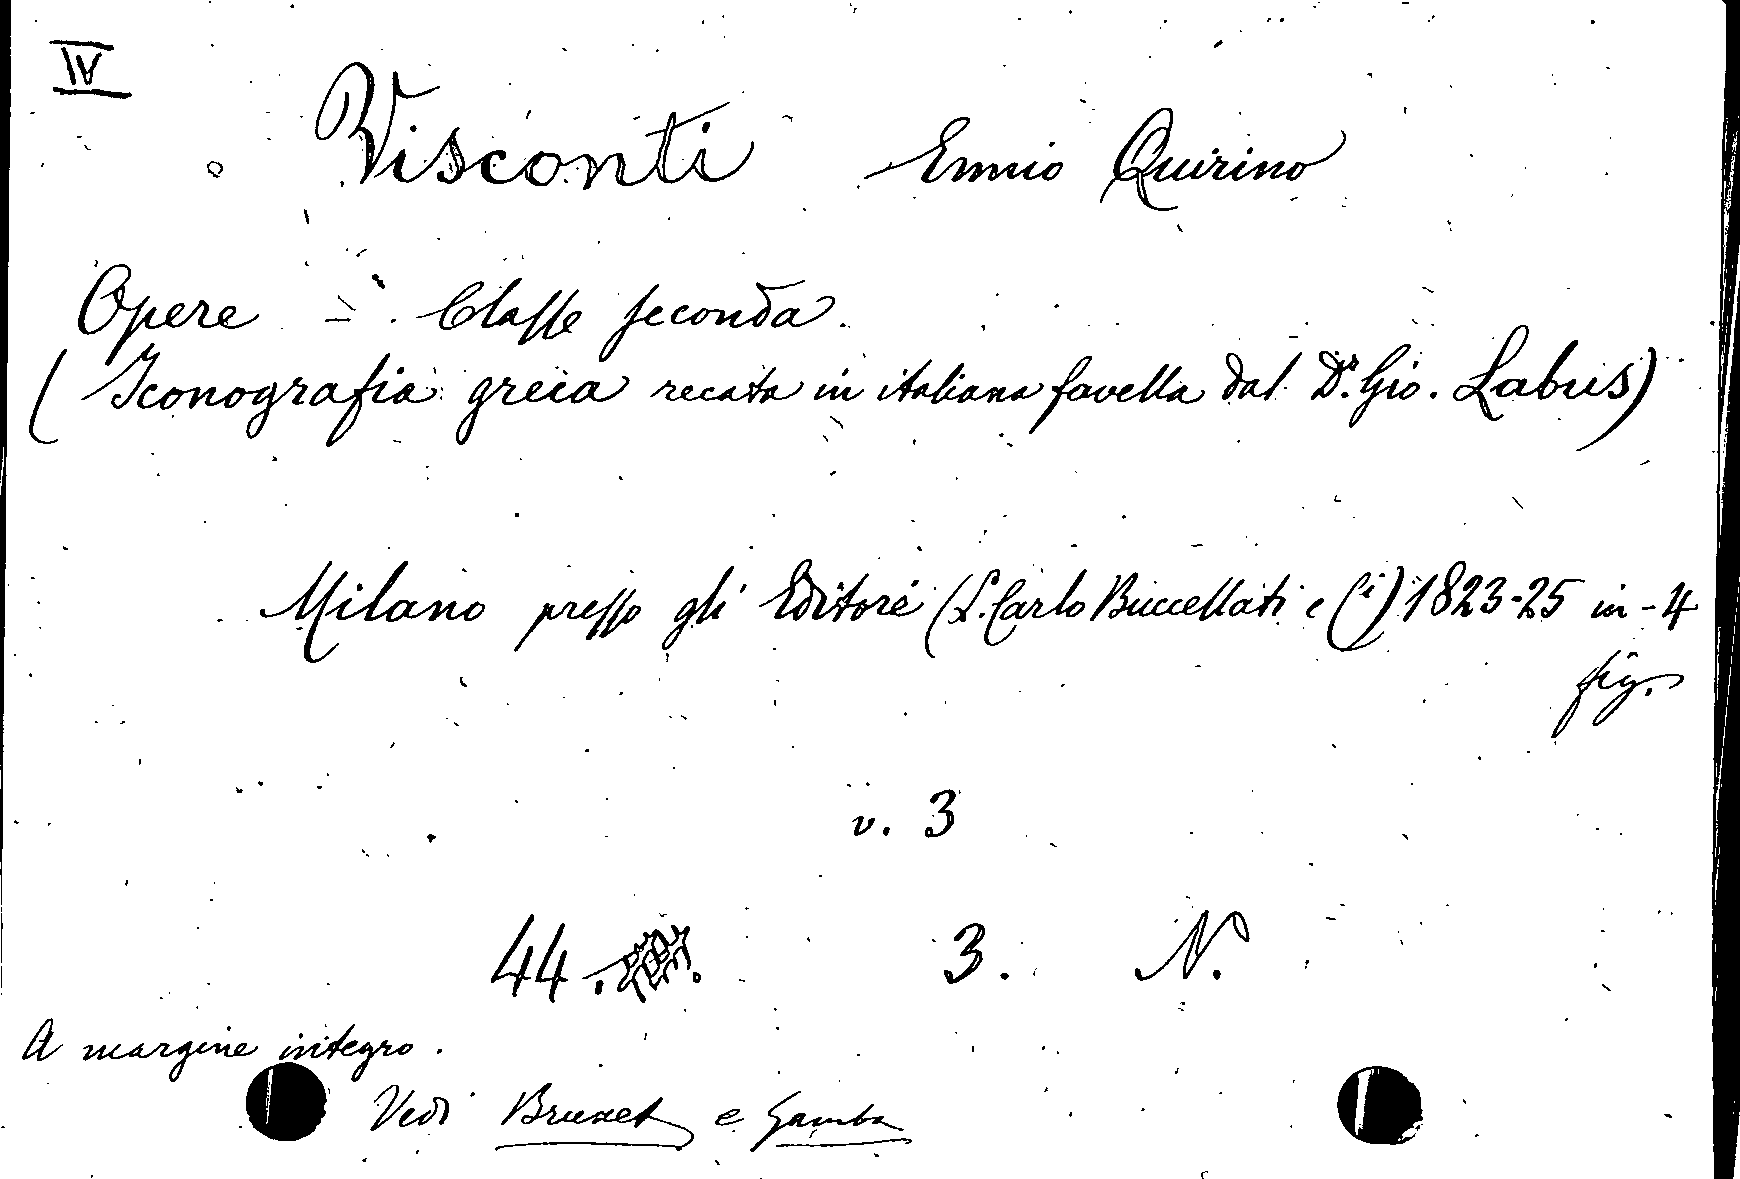 IV
Visconti Ennio Quirino
Opere = Classe seconda.
(Iconografia greca recata in italiana favella dal Dr. Gio. Labus)
Milano presso gli Editori (L. Carlo Buccellati e Ci) 1823-25 in-4
fig.
v. 3
44. 3. N.
A margine integro.
Vedi Brunet e Gamba